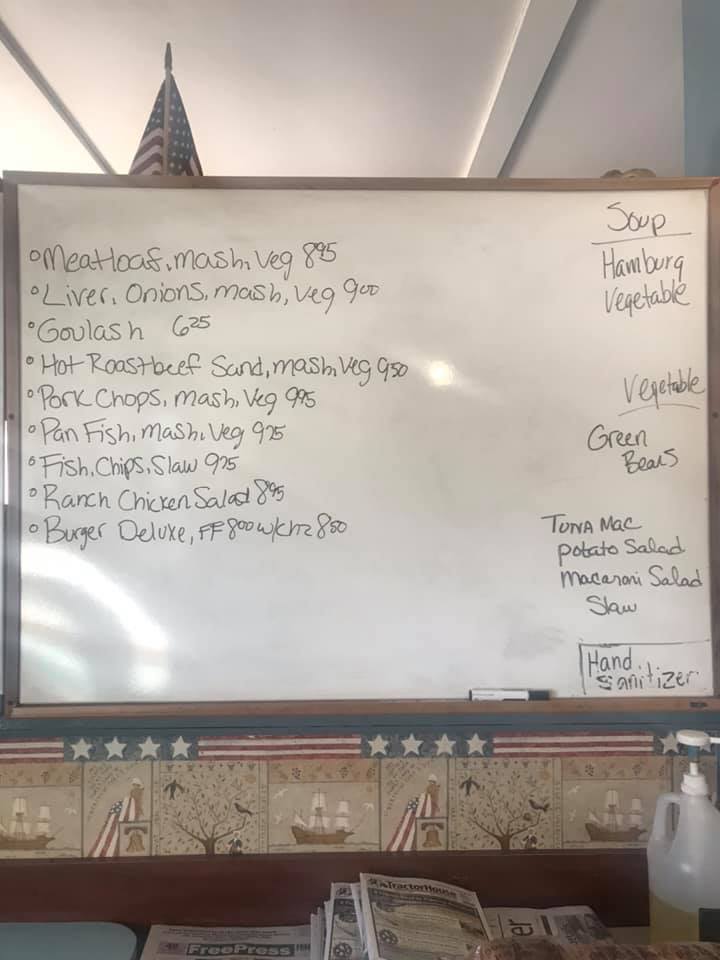 Soup
Hamburg
Vegetable
° Meatloaf, mash, Veg 895
° Liver, Onions, mash, Veg 900
° Goulash 625
° Hot Roastbeef Sand, mash, Veg 950
° Pork Chops, mash, Veg 995
° Pan Fish, Mash, Veg 925
° Fish, Chips, Slaw 925
° Ranch Chicken Salad 895
° Burger Deluxe, FF 800 w/chz 850
Vegetable
Green
Beans
Tuna Mac
potato Salad
macaroni Salad
Slaw
Hand
Sanitizer
TractorHouse
FreePress